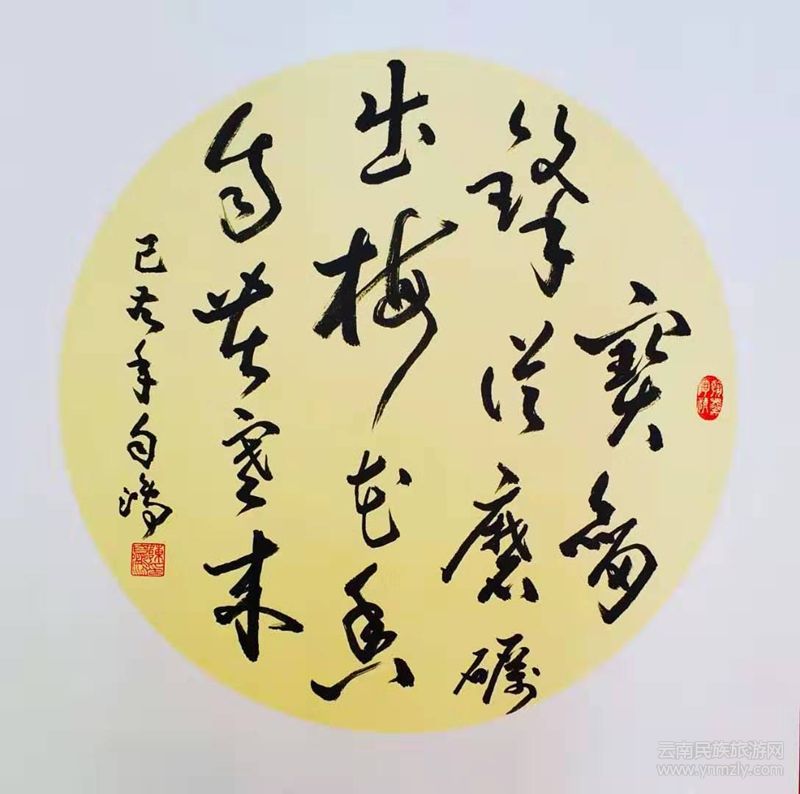 寶劍
鋒從磨礪
出梅花香
自苦寒來
己亥年自鴻
云南民族旅游网
www.ynmzly.com